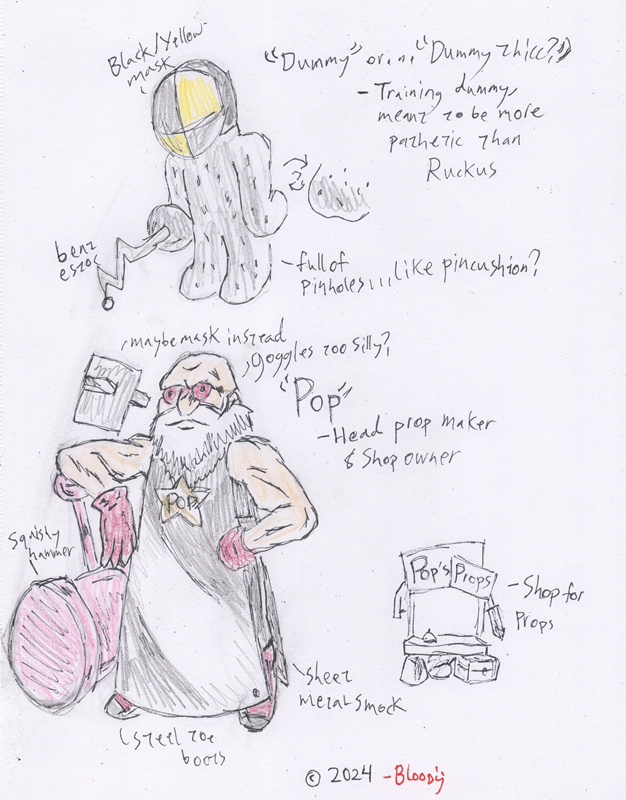 Black/Yellow
mask
"Dummy" or... "Dummy Thicc?"
- Training dummy,
meant to be more
pathetic than
Ruckus
?
bent
estoc
- full of
pinholes... like pincushion?
maybe mask instead,
goggles too silly?
"Pop"
- Head prop maker
& Shop owner
POP
Squishy
hammer
Pop's Props
- Shop for
Props
sheet
metal smock
steel toe
boots
© 2024 - Bloodij